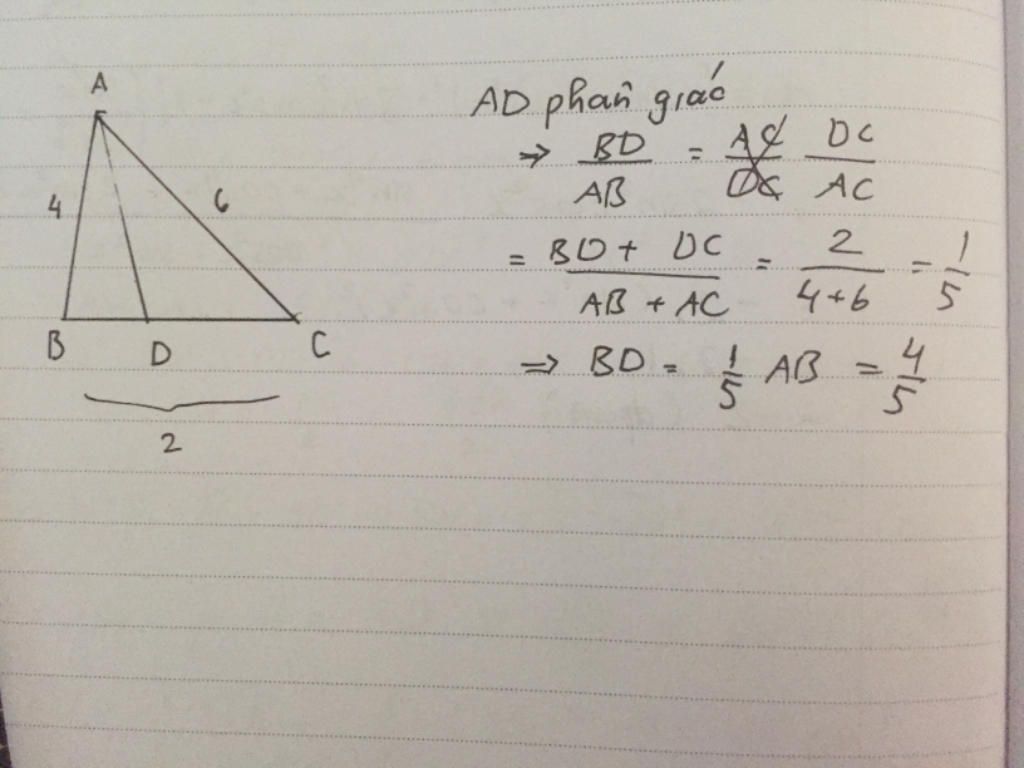 A
4
6
B
D
C
2
AD phân giác
⇒ BD/AB = AC/DC DC/AC
= BD + DC/AB + AC = 2/4+6 = 1/5
⇒ BD = 1/5 AB = 4/5